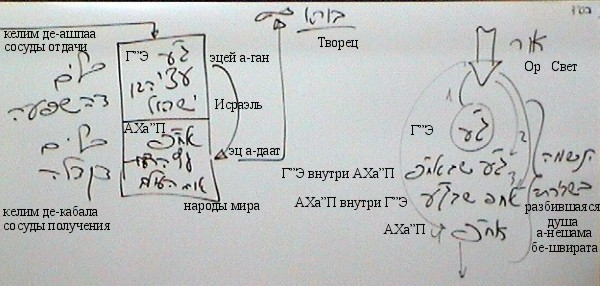 келим де-ашпаа
сосуды отдачи
כלים
דהשפעה
כלים
דקבלה
келим де-кабала
сосуды получения
Г”Э
эцей а-ган
גע
עצי הגן
ישראל
Исраэль
АХа”П
אחפ
эц а-даат
עץ הדעת
אוה העולם
народы мира
בורא
Творец
אור
Ор Свет
1
2
3
Г”Э
גע
Г”Э внутри АХа”П
גע שבאחפ
АХа”П внутри Г”Э
אחפ שבגע
АХа”П
אחפ
הנשמה
разбившаяся
душа
а-нешама
бе-швирата